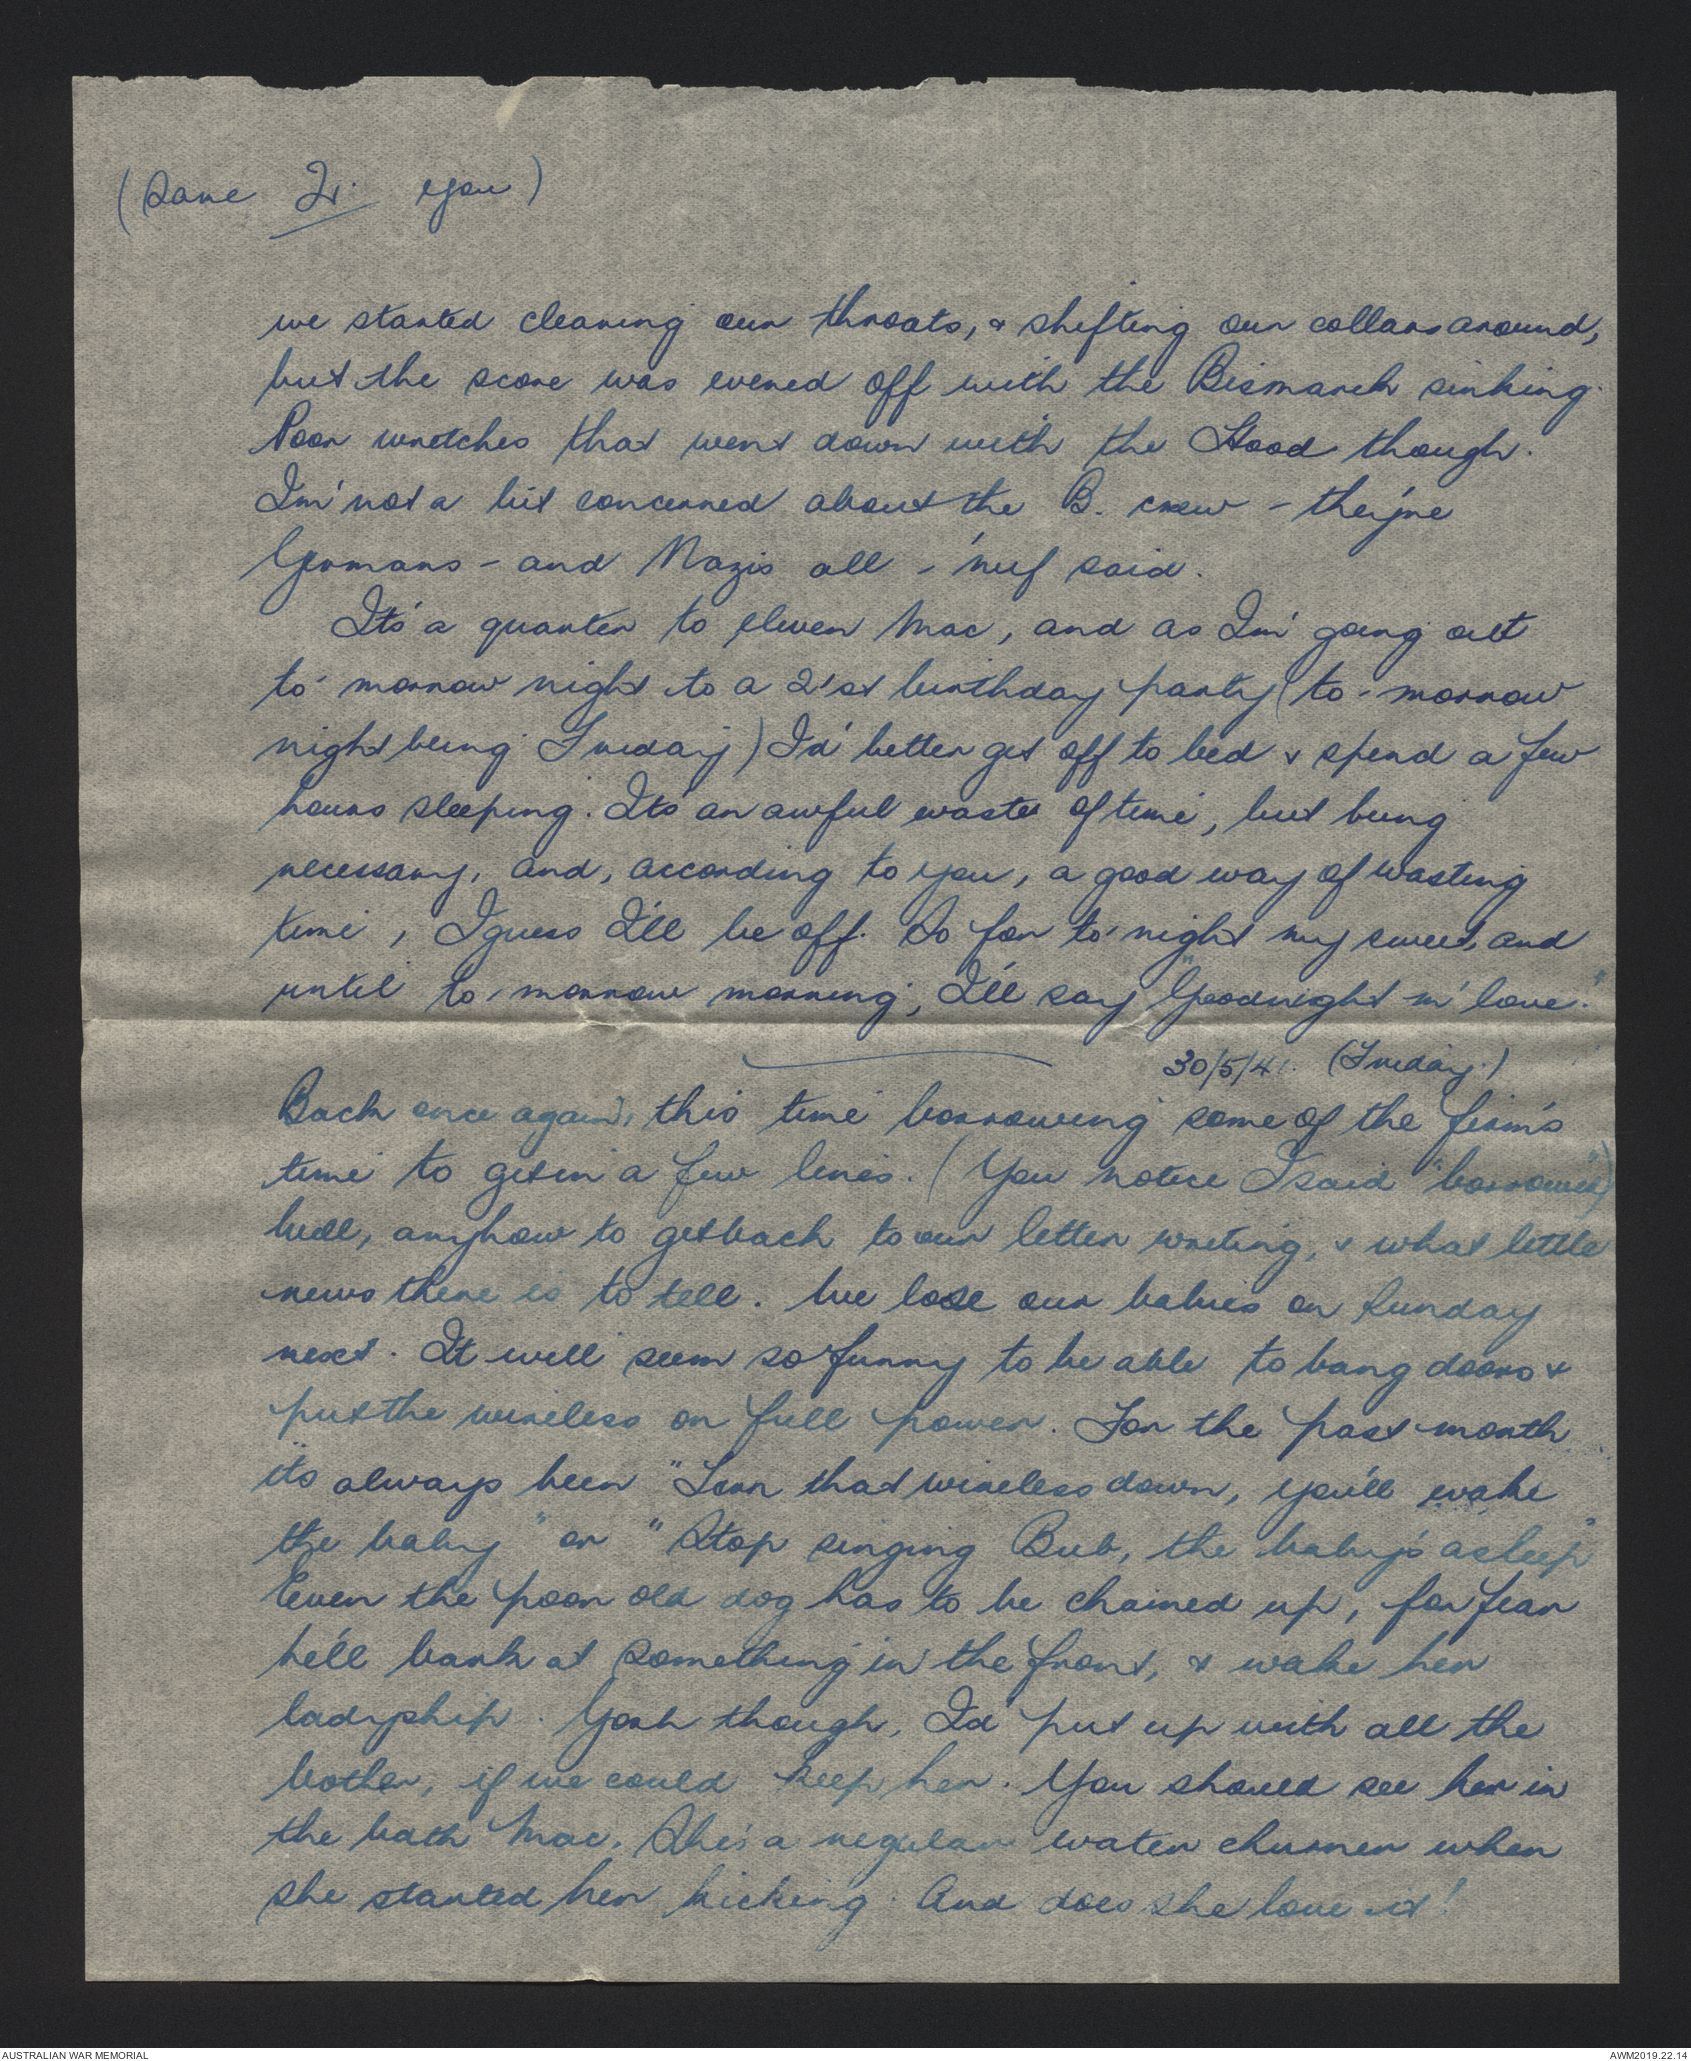 (Same 2. you)
we started clearing our throats, & shifting our collars around,
but the score was evened off with the Bismarck sinking.
Poor wretches that went down with the Hood though.
Im' not a bit concerned about the B. crew - they're
Germans - and Nazis all - 'nuf said.
It's a quarter to eleven Mac, and as I'm going out
to-morrow night to a 21st birthday party (to-morrow
night being Friday) I'd better get off to bed & spend a few
hours sleeping. It's an awful waste of time, but being
necessary, and, according to you, a good way of wasting
time, I guess I'll be off. So for to-night my sweet, and
until to-morrow morning, I'll say "Goodnight m' love."
30/5/41. (Friday.)
Back once again, this time borrowing some of the firm's
time to get in a few lines. (You notice I said "borrowed")
Well, anyhow to get back to our letter writing, & what little
news there is to tell. We lose our babies on Sunday
next. It will seem so funny to be able to bang doors &
put the wireless on full power. For the past month
it's always been "Turn that wireless down, you'll wake
the baby" or "Stop singing Bub, the baby's asleep"
Even the poor old dog has to be chained up, for fear
he'll bark at something in the front, & wake her
ladyship. Gosh though, I'd put up with all the
bother, if we could keep her. You should see her in
the bath Mac. She's a regular water churner when
she started her kicking. And does she love it!
AUSTRALIAN WAR MEMORIAL
AWM2019.22.14